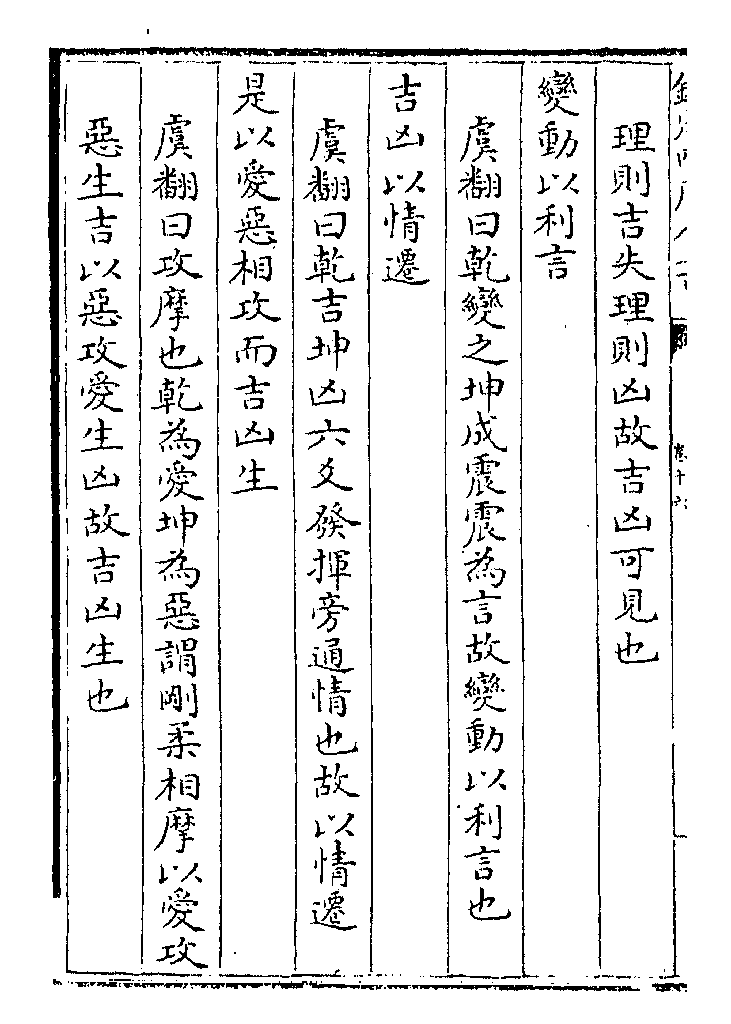 理則吉失理則凶故吉凶可見也
變動以利言
虞翻曰乾變之坤成震震為言故變動以利言也
吉凶以情遷
虞翻曰乾吉坤凶六爻發揮旁通情也故以情遷
是以愛惡相攻而吉凶生
虞翻曰攻摩也乾為愛坤為惡謂剛柔相摩以愛攻
惡生吉以惡攻愛生凶故吉凶生也
卷十六